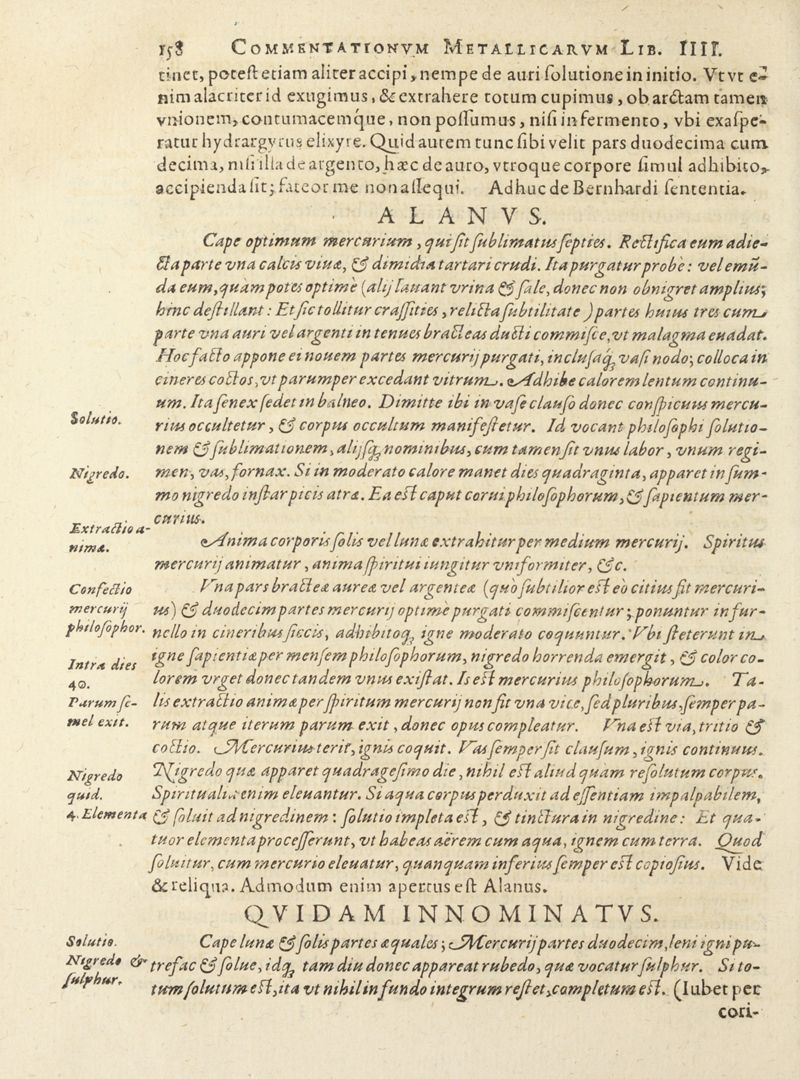 158 COMMENTATIONVM METALLICARVM LIB. IIII.
tinet, potest etiam aliter accipi, nempe de auri solutione in initio. Vt vt e-
nim alacriter id exugimus, & extrahere totum cupimus, ob arctam tamen
vnionem, contumacemq́ue, non possumus, nisi in fermento, vbi exaspe-
ratur hydrargyrus elixyre. Quid autem tunc sibi velit pars duodecima cum
decima, nisi illa de argento, hæc de auro, vtroque corpore simul adhibito,
accipienda sit; fateor me non assequi. Adhuc de Bernhardi sententia.
ALANVS.
Cape optimum mercurium, qui sit sublimatus septies. Rectifica eum adie-
cta parte vna calcis viuæ, & dimidia tartari crudi. Ita purgatur probe: vel emũ-
da eum, quàm potes optimè (alij lauant vrina & sale, donec non obnigret amplius;
hinc destillant: Et sic tollitur crassities, relicta subtilitate) partes huius tres cum
parte vna auri vel argenti in tenues bracteas ducti commisce, vt malagma euadat.
Hoc facto appone ei nouem partes mercurij purgati, inclusaq; vasi nodo; colloca in
cineres coctos, vt parumper excedant vitrum. Adhibe calorem lentum continu-
um. Ita senex sedet in balneo. Dimitte ibi in vase clauso donec conspicuus mercu-
Solutio. rius occultetur, & corpus occultum manifestetur. Id vocant philosophi solutio-
nem & sublimationem, alijsq; nominibus, cum tamen sit vnus labor, vnum regi-
Nigredo. men, vas, fornax. Si in moderato calore manet dies quadraginta, apparet in sum-
mo nigredo instar picis atræ. Ea est caput corui philosophorum, & sapientum mer-
Extractio a- curius.
nimæ. Anima corporis solis vel lunæ extrahitur per medium mercurij. Spiritus
mercurij animatur, anima spiritui iungitur vniformiter, &c.
Confectio Vna pars bracteæ aureæ vel argenteæ (quò subtilior est eò citius fit mercuri-
mercurij us) & duodecim partes mercurij optime purgati commiscentur; ponuntur in fur-
philosophor. nello in cineribus siccis, adhibitoq; igne moderato coquuntur. Vbi steterunt in
Intra dies igne sapientiæ per mensem philosophorum, nigredo horrenda emergit, & color co-
40. lorem vrget donec tandem vnus existat. Is est mercurius philosophorum. Ta-
Parum se- lis extractio animæ per spiritum mercurij non fit vna vice, sed pluribus, semper pa-
mel exit. rum atque iterum parum exit, donec opus compleatur. Vna est via, tritio &
coctio. Mercurius terit, ignis coquit. Vas semper sit clausum, ignis continuus.
Nigredo Nigredo quæ apparet quadragesimo die, nihil est aliud quàm resolutum corpus.
quid. Spiritualia enim eleuantur. Si aqua corpus perduxit ad essentiam impalpabilem,
4. Elementa & soluit ad nigredinem: solutio impleta est, & tinctura in nigredine: Et qua-
tuor elementa processerunt, vt habeas aërem cum aqua, ignem cum terra. Quod
soluitur, cum mercurio eleuatur, quanquam inferius semper est copiosius. Vide
& reliqua. Admodum enim apertus est Alanus.
QVIDAM INNOMINATVS.
Solutio. Cape lunæ & solis partes æquales; Mercurij partes duodecim, leni igni pu-
Nigredo & trefac & solue, idq; tam diu donec appareat rubedo, quæ vocatur sulphur. Si to-
sulphur. tum solutum est, ita vt nihil in fundo integrum restet, completum est. (Iubet per
cori-